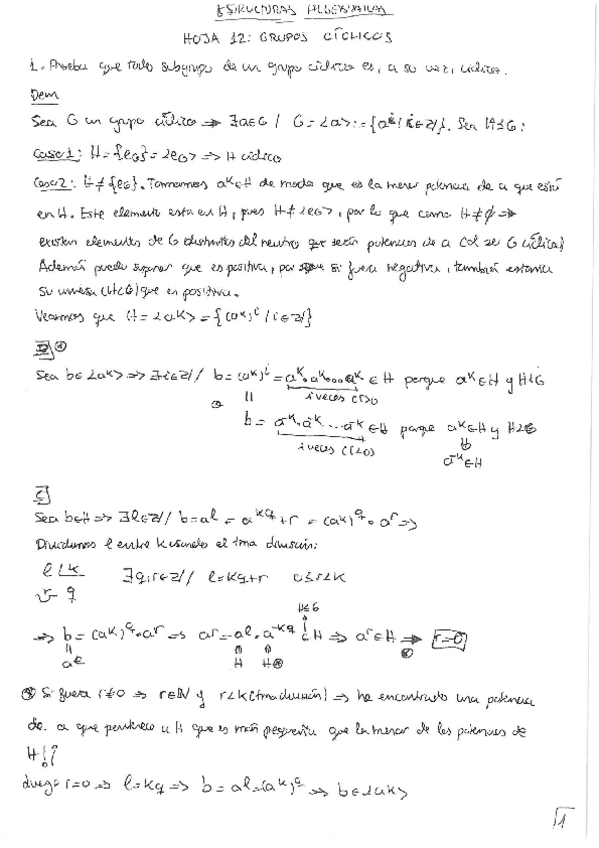 ESTRUCTURAS ALGEBRAICAS
HOJA 12: GRUPOS CÍCLICOS
1. Prueba que todo subgrupo de un grupo cíclico es, a su vez, cíclico.
Dem
Sea G un grupo cíclico ⇒ ∃a∈G / G = <a> := {a^i / i∈Z}. Sea H≤G:
Caso 1: H = {e_G} = <e_G> ⇒ H cíclico
Caso 2: H ≠ {e_G}. Tomamos a^k∈H de modo que es la menor potencia de a que está
en H. Este elemento esta en H, pues H ≠ <e_G>, por lo que como H ≠ ∅ ⇒
existen elementos de G distintos del neutro que serán potencias de a (al ser G cíclico)
Además puedo suponer que es positiva, porque si fuera negativa, también estaría
su inversa (H≤G) que es positiva.
Veamos que H = <a^k> = {(a^k)^i / i∈Z}
⊇ ⊛
Sea b∈<a^k> ⇒ ∃i∈Z // b = (a^k)^i = a^k·a^k...a^k ∈ H porque a^k∈H y H≤G
i veces (i>0)
b = a^-k·a^-k...a^-k∈H porque a^k∈H y H≤G
i veces (i<0)
a^-k∈H
⊆
Sea b∈H ⇒ ∃l∈Z // b = a^l = a^(kq+r) = (a^k)^q · a^r ⇒
Dividimos l entre k usando el tma división:
l | k ∃q,r∈Z // l = kq+r 0≤r<k
r q
H≤G
⇒ b = (a^k)^q·a^r ⇒ a^r = a^l·a^-kq ∈ H ⇒ a^r∈H ⇒ r=0
a^l H H⊛ ⊛
⊛ Si fuera r≠0 ⇒ r∈N y r<k (tma división) ⇒ he encontrado una potencia
de a que pertenece a H que es más pequeña que la menor de las potencias de
H !!
Luego r=0 ⇒ l=kq ⇒ b = a^l = (a^k)^q ⇒ b∈<a^k>
1